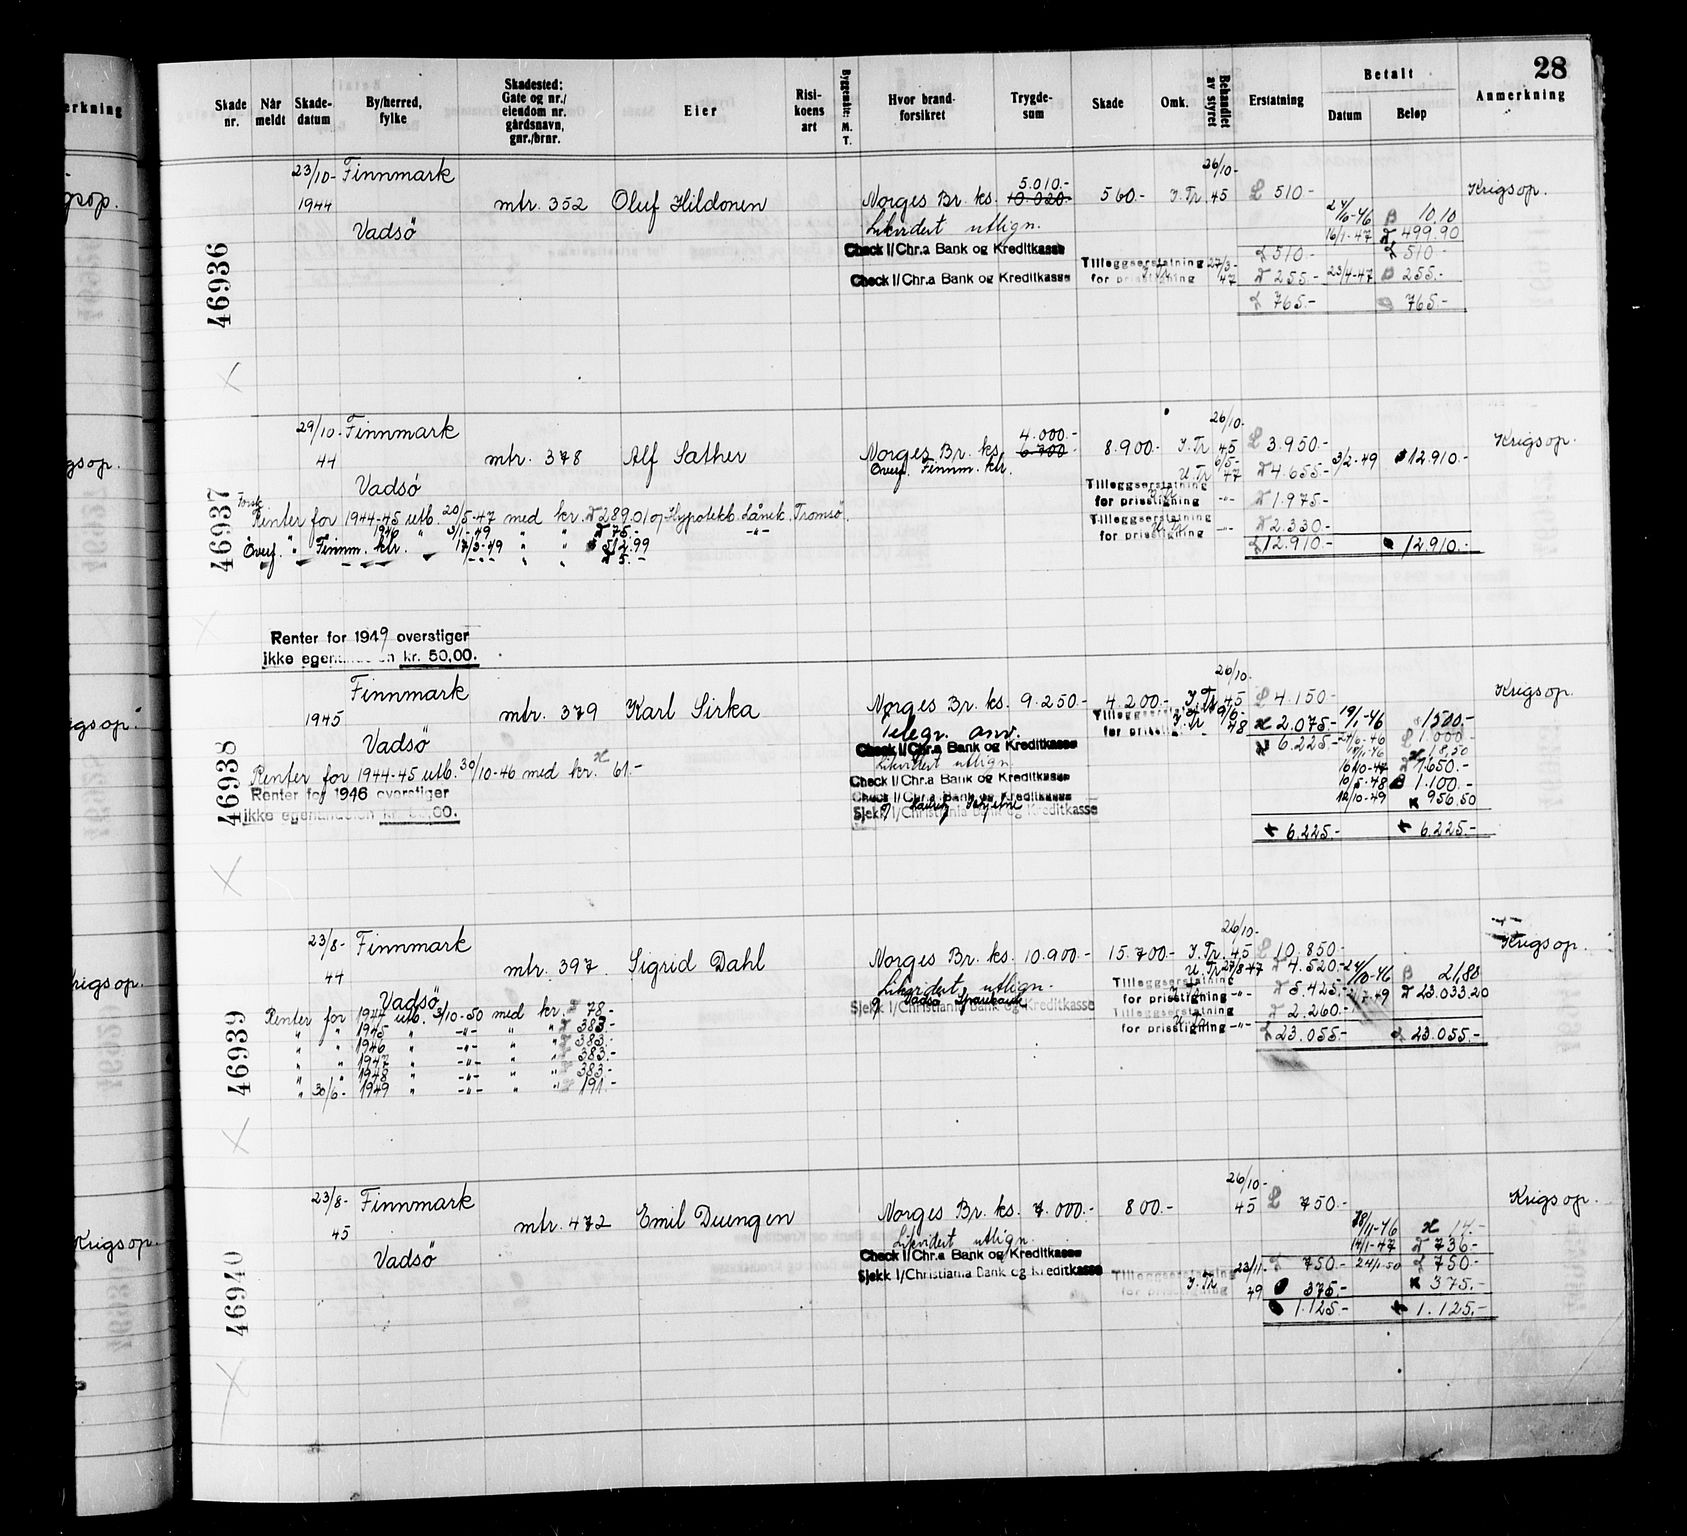 28
Skade nr.
Når meldt
Skadedatum
By/herred, fylke
Skadested: Gate og nr./ eiendom nr. gårdsnavn, gnr./brnr.
Eier
Risikoens art
Byggemåte: M. T.
Hvor brandforsikret
Trygdesum
Skade
Omk.
Behandlet av styret
Erstatning
Betalt
Datum
Beløp
Anmerkning
46936
23/10- Finnmark
1944
mtr. 352 Oluf Hildonen
Vadsö
Norges Br. ks. 5.010.- 10.020.- 560.- I. Tr. 26/10- 45 510.- Krigsop.
Likvidert utlign.
24/10-46 10.10
16/1-47 499.90
Check I/Chr.a Bank og Kreditkasse
510.- 510.-
Tilleggserstatning for prisstigning 27/3-47 255.- 23/4-47 255.-
Check I/Chr.a Bank og Kreditkasse
765.- 765.-
46937
29/10- Finnmark
44
mtr. 378 Alf Sather
Vadsö
Norges Br. ks. 4.000.- 6.700 8.900.- I. Tr. 26/10- 45 3.950.- Krigsop.
Överf. Finnm. ktr. U. Tr. 47 4.655.- 3/2-49 12.910.-
Tilleggserstatning for prisstigning -"- 1.975.-
Tilleggserstatning for prisstigning -"- 2.330.-
12.910.- 12.910.-
Renter for 1944-45 utb. 20/5-47 med kr. 289.01 og Hypotekb. Lånek. Tromsö.
" " 1946 " 3/1-49 " " 75.- -"-
Överf. Finnm. ktr. 17/3-49 " " 512.99
5.-
Renter for 1949 overstiger
ikke egenandelen kr. 50,00.
46938
Finnmark
1945
mtr. 379 Karl Sirka
Vadsö
Norges Br. ks. 9.250.- 4.200.- I. Tr. 26/10- 45 4.150.- Krigsop.
Telegr. anv.
Tilleggserstatning for prisstigning I. Tr. 48 2.075.- 19/1-46 1500.-
Check I/Chr.a Bank og Kreditkasse
6.225.- 24/6-46 1.000.-
Likvidert utlign.
18,50
Check I/Chr.a Bank og Kreditkasse
16/10-47 1.650.-
Check I/Chr.a Bank og Kreditkasse
10/5-48 1.100.-
Sjekk I/Christiania Bank og Kreditkasse
12/10-49 956,50
6.225.- 6.225.-
Renter for 1944-45 utb. 30/10-46 med kr. 61.-
Renter for 1946 overstiger
ikke egenandelen kr. 50,00.
46939
23/8- Finnmark
44
mtr. 397. Sigrid Dahl
Vadsö
Norges Br. ks. 10.900.- 15.700.- I. Tr. 26/10- 45 10.850.- Krigsop.
U. Tr. 27/8-47 4.520.- 24/10-46 21,80
Likvidert utlign.
Tilleggserstatning for prisstigning -"- 5.425.- 23.033.20
g Vadsö Sparekasse
Sjekk I/Christiania Bank og Kreditkasse
Tilleggserstatning for prisstigning -"- 2.260.-
23.055.- 23.055.-
Renter for 1944 utb. 3/10-50 med kr. 78.-
" " 1945 " -"- " " 383.-
" " 1946 " -"- " " 383.-
" " 1947 " -"- " " 383.-
" " 1948 " -"- " " 383.-
" 30/6- 1949 " -"- " " 191.-
46940
23/8- Finnmark
45
mtr. 472 Emil Duengen
Vadsö
Norges Br. ks. 7.000.- 800.- 26/10- 45 750.- Krigsop.
Likvidert utlign.
18/11-46 14.-
14/1-47 736.-
Check I/Chr.a Bank og Kreditkasse
750.- 24/1-50 750.-
Sjekk I/Christiania Bank og Kreditkasse
Tilleggserstatning for prisstigning I. Tr. 23/11- 49 375.- 375.-
1.125.- 1.125.-